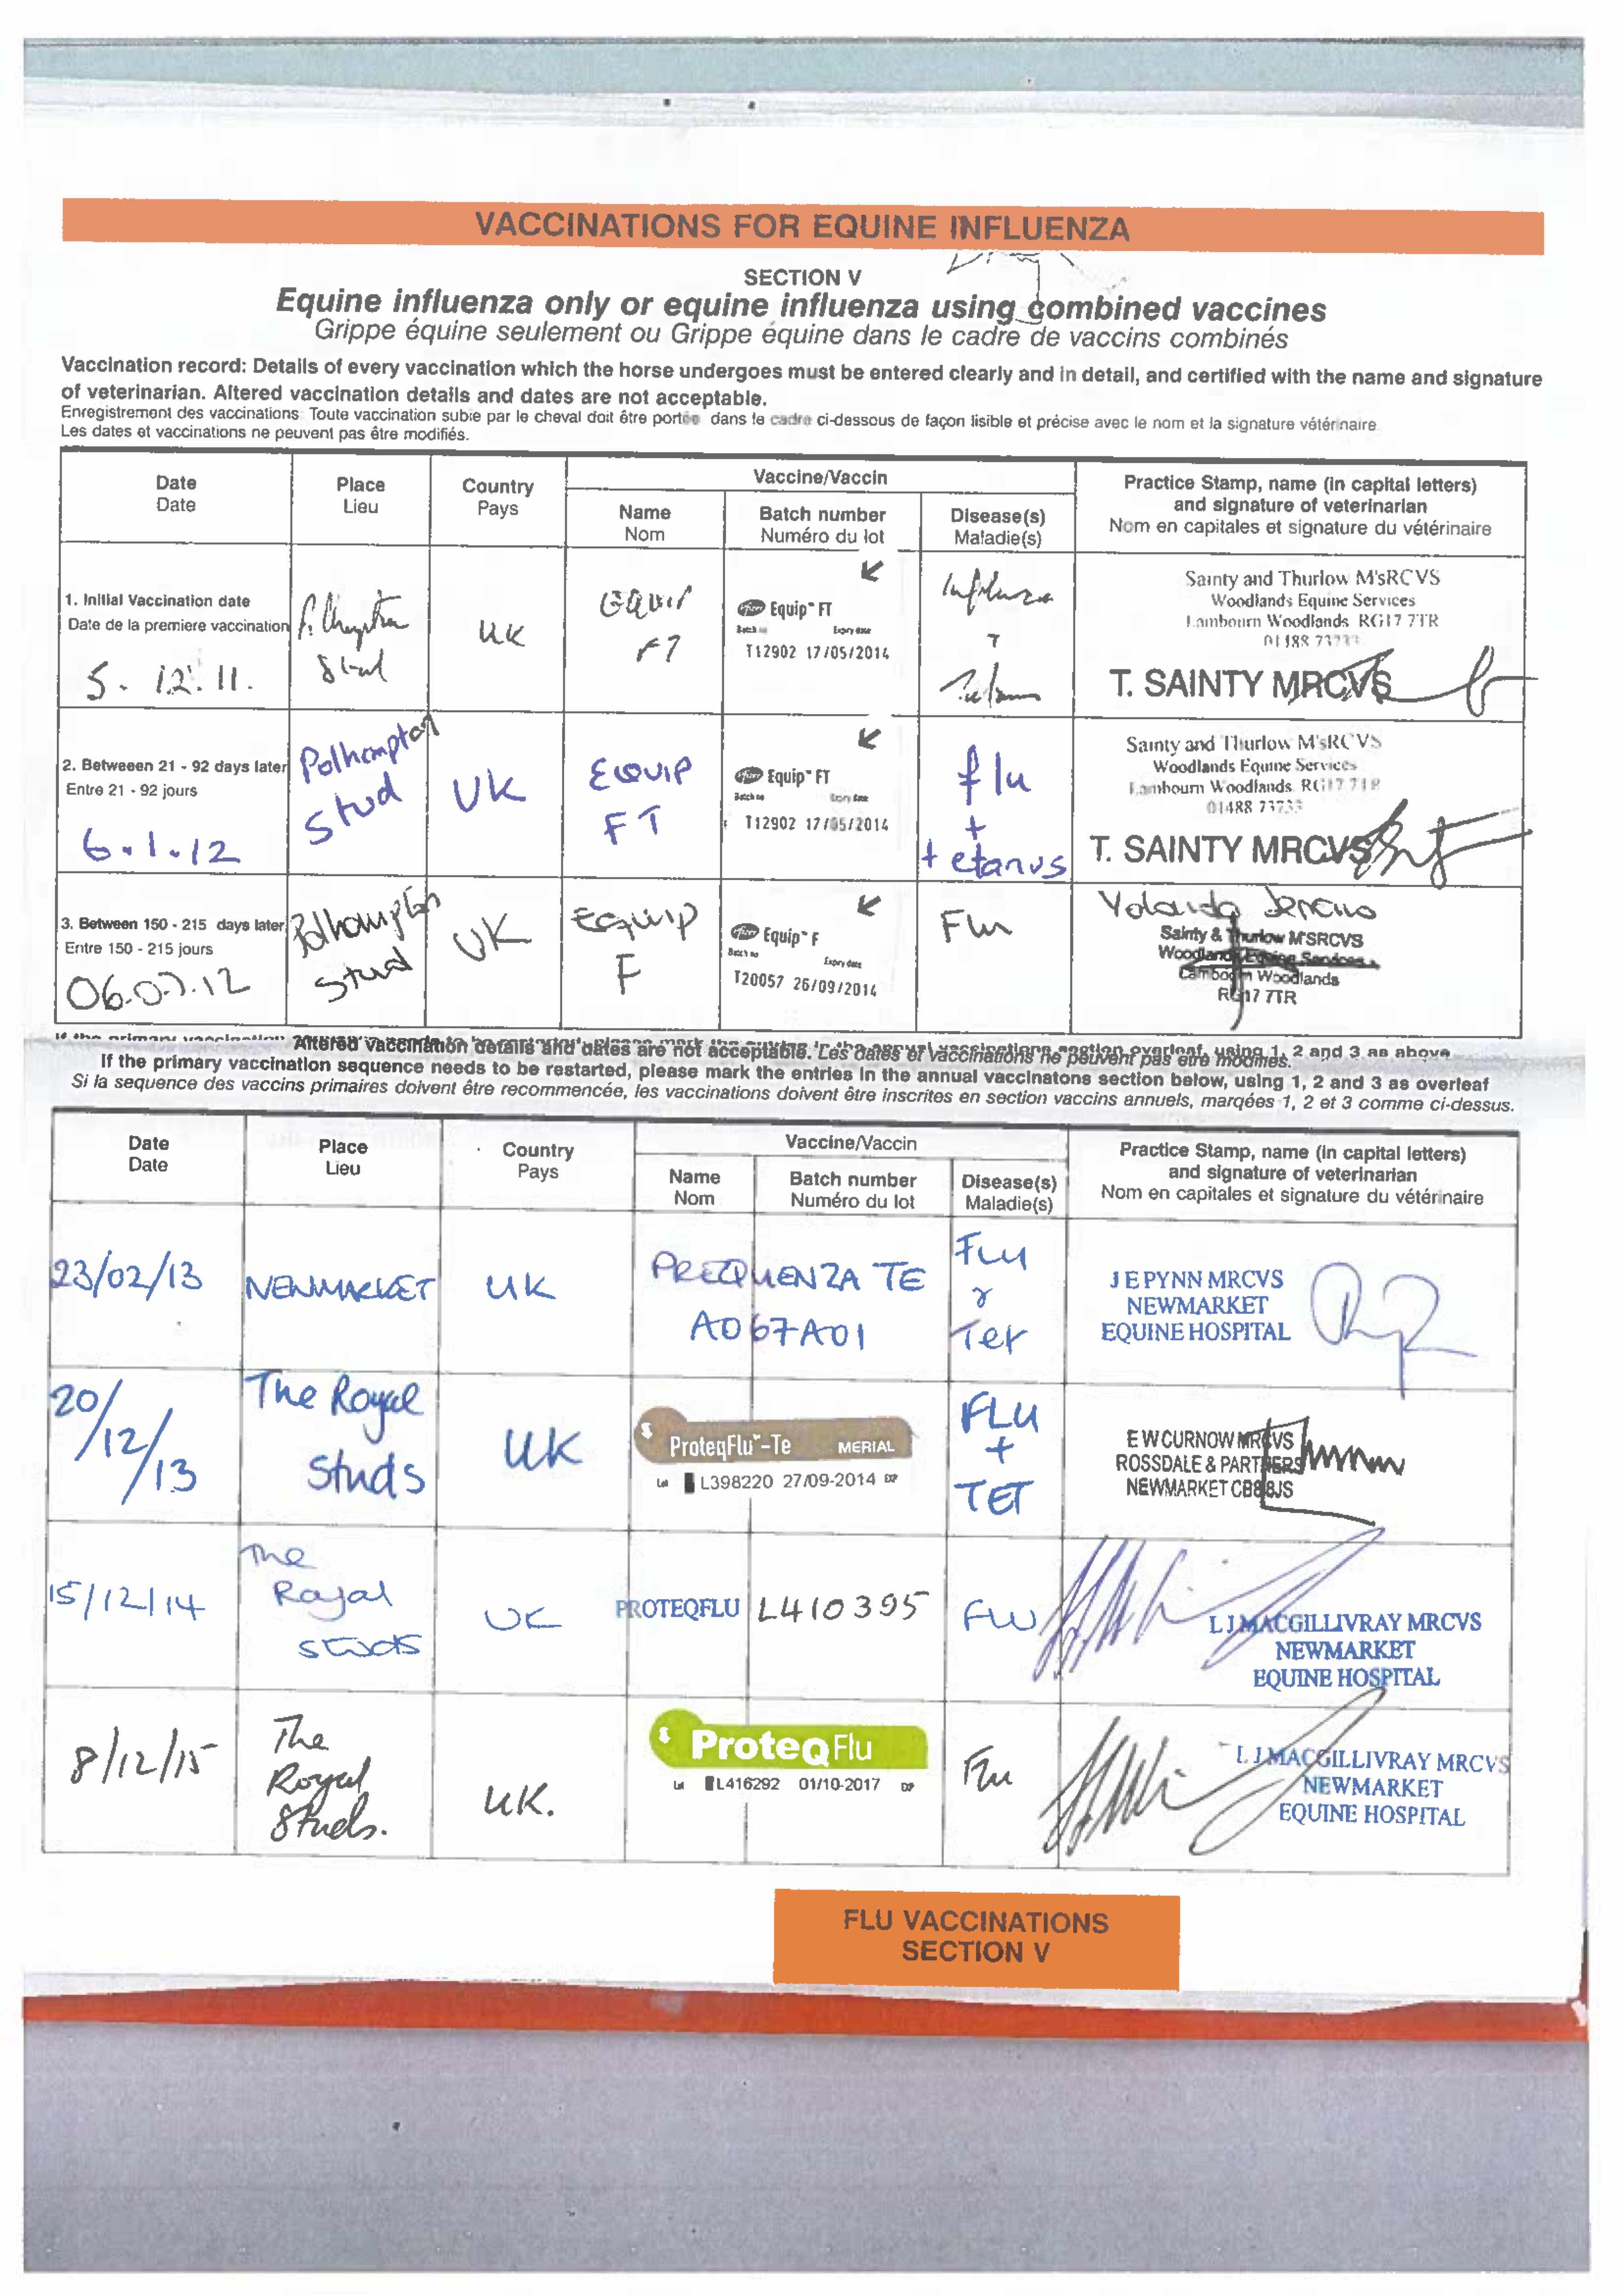 VACCINATIONS FOR EQUINE INFLUENZA
SECTION V
Equine influenza only or equine influenza using combined vaccines
Grippe équine seulement ou Grippe équine dans le cadre de vaccins combinés
Vaccination record: Details of every vaccination which the horse undergoes must be entered clearly and in detail, and certified with the name and signature
of veterinarian. Altered vaccination details and dates are not acceptable.
Enregistrement des vaccinations: Toute vaccination subie par le cheval doit être portée dans le cadre ci-dessous de façon lisible et précise avec le nom et la signature vétérinaire
Les dates et vaccinations ne peuvent pas être modifiés.
Date
Date
Place
Lieu
Country
Pays
Vaccine/Vaccin
Name
Nom
Batch number
Numéro du lot
Disease(s)
Maladie(s)
Practice Stamp, name (in capital letters)
and signature of veterinarian
Nom en capitales et signature du vétérinaire
1. Initial Vaccination date
Date de la premiere vaccination
5. 12. 11.
Stud
UK
EQUIP
FT
Equip FT
Batch no Expiry date
T12902 17/05/2014
Influenza
Sainty and Thurlow M'sRCVS
Woodlands Equine Services
Lambourn Woodlands RG17 7TR
T. SAINTY MRCVS
2. Betweeen 21 - 92 days later
Entre 21 - 92 jours
6.1.12
Polhampton
Stud
UK
EQUIP
FT
Equip FT
Batch no Expiry date
T12902 17/05/2014
flu
+
tetanus
Sainty and Thurlow M'sRCVS
Woodlands Equine Services
Lambourn Woodlands RG17 7TR
T. SAINTY MRCVS
3. Between 150 - 215 days later
Entre 150 - 215 jours
06.07.12
Polhampton
Stud
UK
Equip
F
Equip F
Batch no Expiry date
T20057 26/09/2014
Flu
Sainty & Thurlow M'SRCVS
Woodlands Equine Services
Lambourn Woodlands
RG17 7TR
Altered vaccination details and dates are not acceptable. Les dates et vaccinations ne peuvent pas être modifiés.
If the primary vaccination sequence needs to be restarted, please mark the entries in the annual vaccinatons section below, using 1, 2 and 3 as overleaf
Si la sequence des vaccins primaires doivent être recommencée, les vaccinations doivent être inscrites en section vaccins annuels, marqées 1, 2 et 3 comme ci-dessus.
Date
Date
Place
Lieu
Country
Pays
Vaccine/Vaccin
Name
Nom
Batch number
Numéro du lot
Disease(s)
Maladie(s)
Practice Stamp, name (in capital letters)
and signature of veterinarian
Nom en capitales et signature du vétérinaire
23/02/13
NEWMARKET
UK
PREQUENZA TE
A067A01
Flu
&
Tet
J E PYNN MRCVS
NEWMARKET
EQUINE HOSPITAL
20/12/13
The Royal
Studs
UK
ProteqFlu™-Te MERIAL
Lot L398220 27/09-2014 EXP
FLU
+
TET
E W CURNOW MRCVS
ROSSDALE & PARTNERS
NEWMARKET CB8 8JS
15/12/14
The
Royal
Studs
UK
PROTEQFLU
L410395
FLU
L J MACGILLIVRAY MRCVS
NEWMARKET
EQUINE HOSPITAL
8/12/15
The
Royal
Studs.
UK.
ProteqFlu
Lot L416292 01/10-2017 EXP
Flu
L J MACGILLIVRAY MRCVS
NEWMARKET
EQUINE HOSPITAL
FLU VACCINATIONS
SECTION V